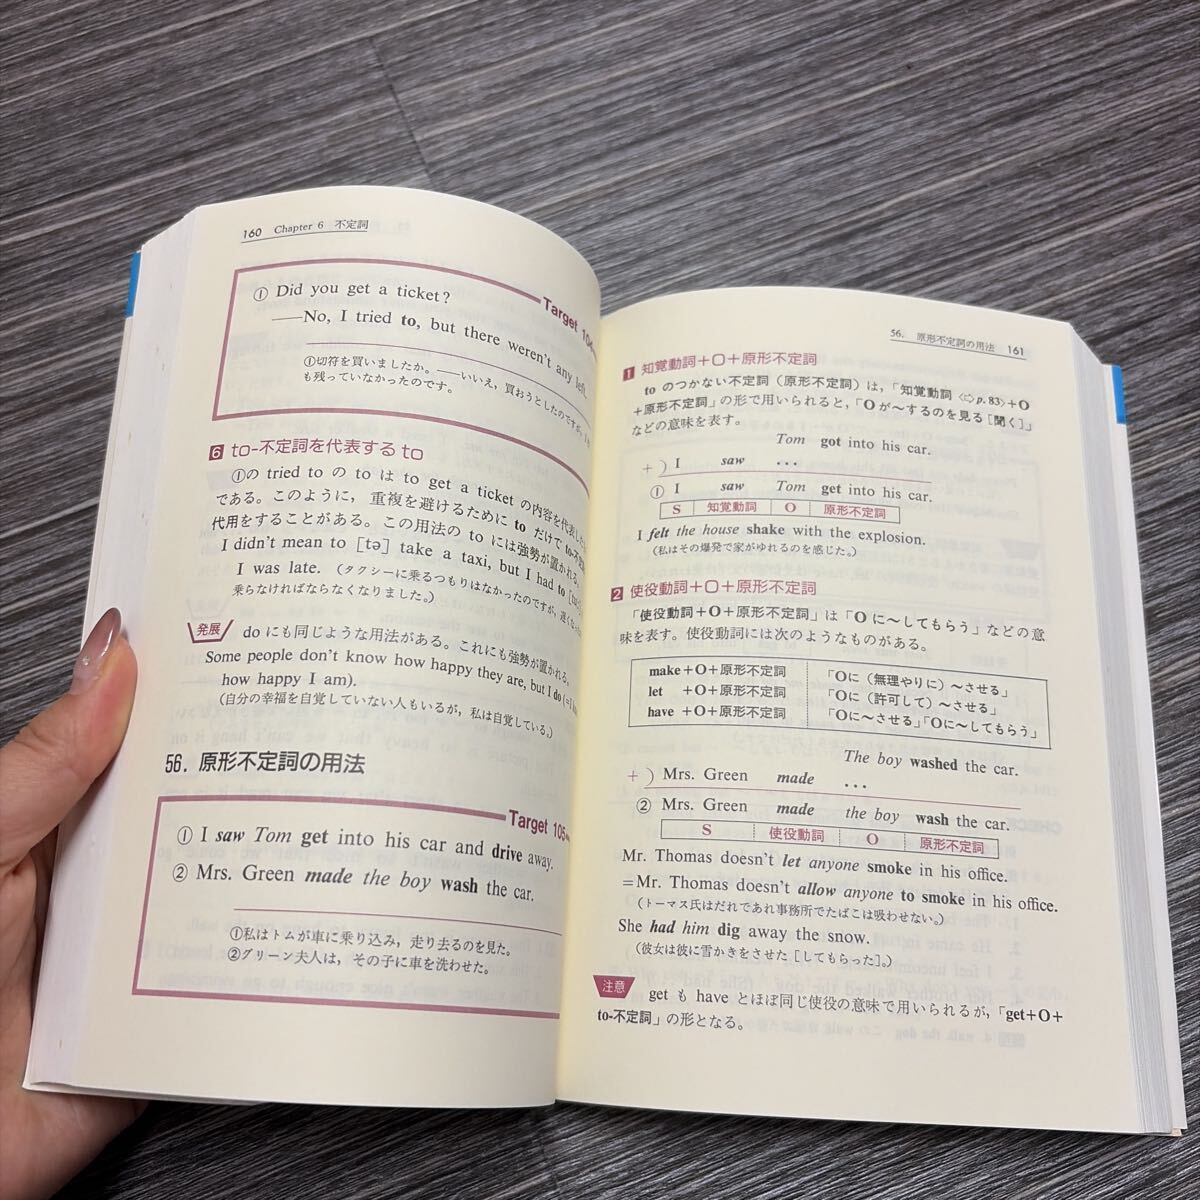 160 Chapter 6 不定詞
Target 104
① Did you get a ticket?
——No, I tried to, but there weren't any left.
①切符を買いましたか。——いいえ，買おうとしたのですが，
も残っていなかったのです。
6 to-不定詞を代表する to
①の tried to の to は to get a ticket の内容を代表した
である。このように，重複を避けるために to だけで to-不定
代用をすることがある。この用法の to には強勢が置かれる。
I didn't mean to [tə] take a taxi, but I had to
I was late. (タクシーに乗るつもりはなかったのですが，遅く
乗らなければならなくなりました。)
発展 do にも同じような用法がある。これにも強勢が置かれる。
Some people don't know how happy they are, but I do (=I
how happy I am).
(自分の幸福を自覚していない人もいるが，私は自覚している。)
56. 原形不定詞の用法
Target 105
① I saw Tom get into his car and drive away.
② Mrs. Green made the boy wash the car.
①私はトムが車に乗り込み，走り去るのを見た。
②グリーン夫人は，その子に車を洗わせた。
56. 原形不定詞の用法 161
1 知覚動詞＋O＋原形不定詞
to のつかない不定詞（原形不定詞）は，「知覚動詞〈⇨p.83〉＋O
＋原形不定詞」の形で用いられると，「O が～するのを見る［聞く］」
などの意味を表す。
Tom got into his car.
+ ) I saw ...
① I saw Tom get into his car.
S 知覚動詞 O 原形不定詞
I felt the house shake with the explosion.
(私はその爆発で家がゆれるのを感じた。)
2 使役動詞＋O＋原形不定詞
「使役動詞＋O＋原形不定詞」は「O に～してもらう」などの意
味を表す。使役動詞には次のようなものがある。
make＋O＋原形不定詞 「Oに（無理やりに）～させる」
let ＋O＋原形不定詞 「Oに（許可して）～させる」
have ＋O＋原形不定詞 「Oに～させる」「Oに～してもらう」
The boy washed the car.
+ ) Mrs. Green made ...
② Mrs. Green made the boy wash the car.
S 使役動詞 O 原形不定詞
Mr. Thomas doesn't let anyone smoke in his office.
=Mr. Thomas doesn't allow anyone to smoke in his office.
(トーマス氏はだれであれ事務所でたばこは吸わせない。)
She had him dig away the snow.
(彼女は彼に雪かきをさせた［してもらった］。)
注意 get も have とほぼ同じ使役の意味で用いられるが，「get＋O＋
to-不定詞」の形となる。